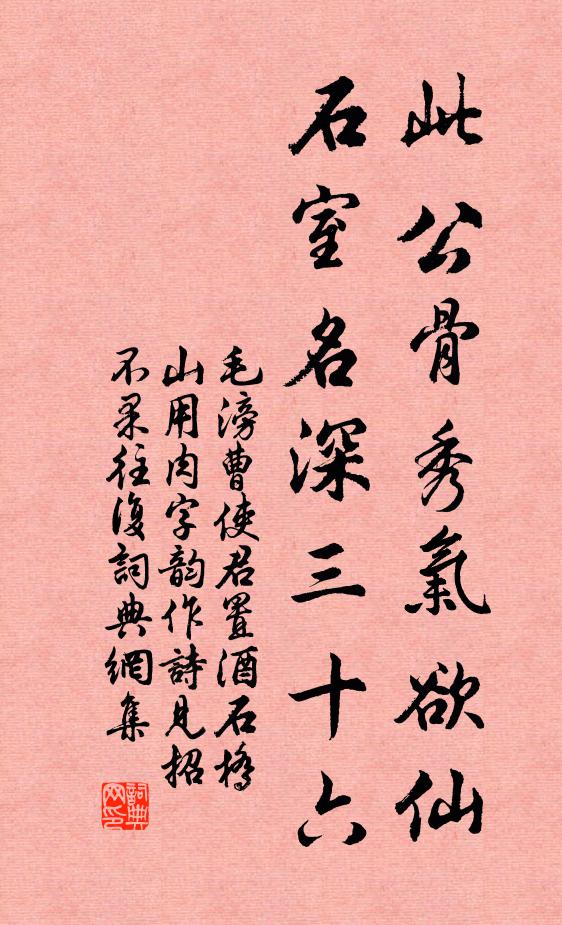 此公骨秀氣欲仙
石室名深三十六
毛滂曹使君置酒石橋
山用肉字韵作詩見招
不果往復詞典網集
詞典
网印